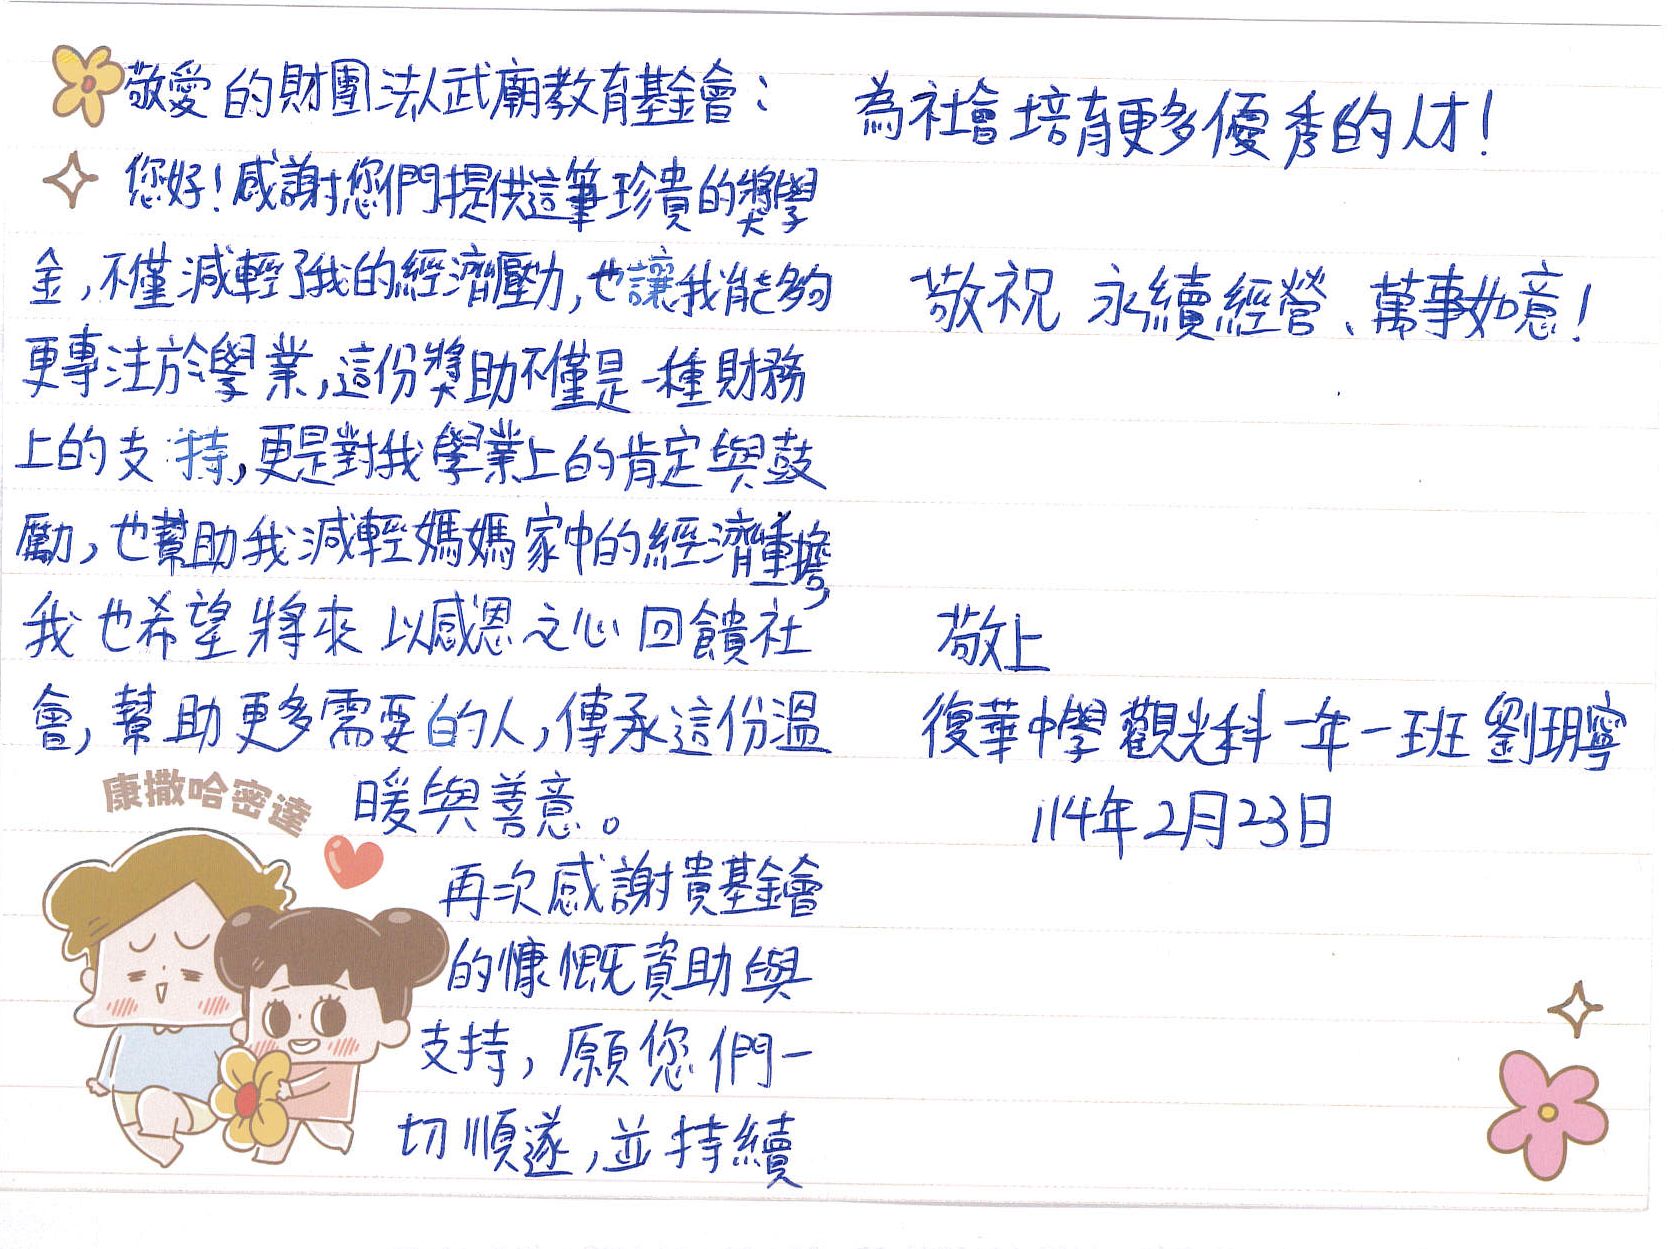 敬愛的財團法人武廟教育基金會：
您好！感謝您們提供這筆珍貴的獎學
金，不僅減輕了我的經濟壓力，也讓我能夠
更專注於學業，這份獎助不僅是一種財務
上的支持，更是對我學業上的肯定與鼓
勵，也幫助我減輕媽媽家中的經濟重擔，
我也希望將來以感恩之心回饋社
會，幫助更多需要的人，傳承這份溫
暖與善意。
康撒哈密達
再次感謝貴基金會
的慷慨資助與
支持，願您們一
切順遂，並持續
為社會培育更多優秀的人才！
敬祝 永續經營、萬事如意！
敬上
復華中學觀光科一年一班 劉玥寧
114年2月23日